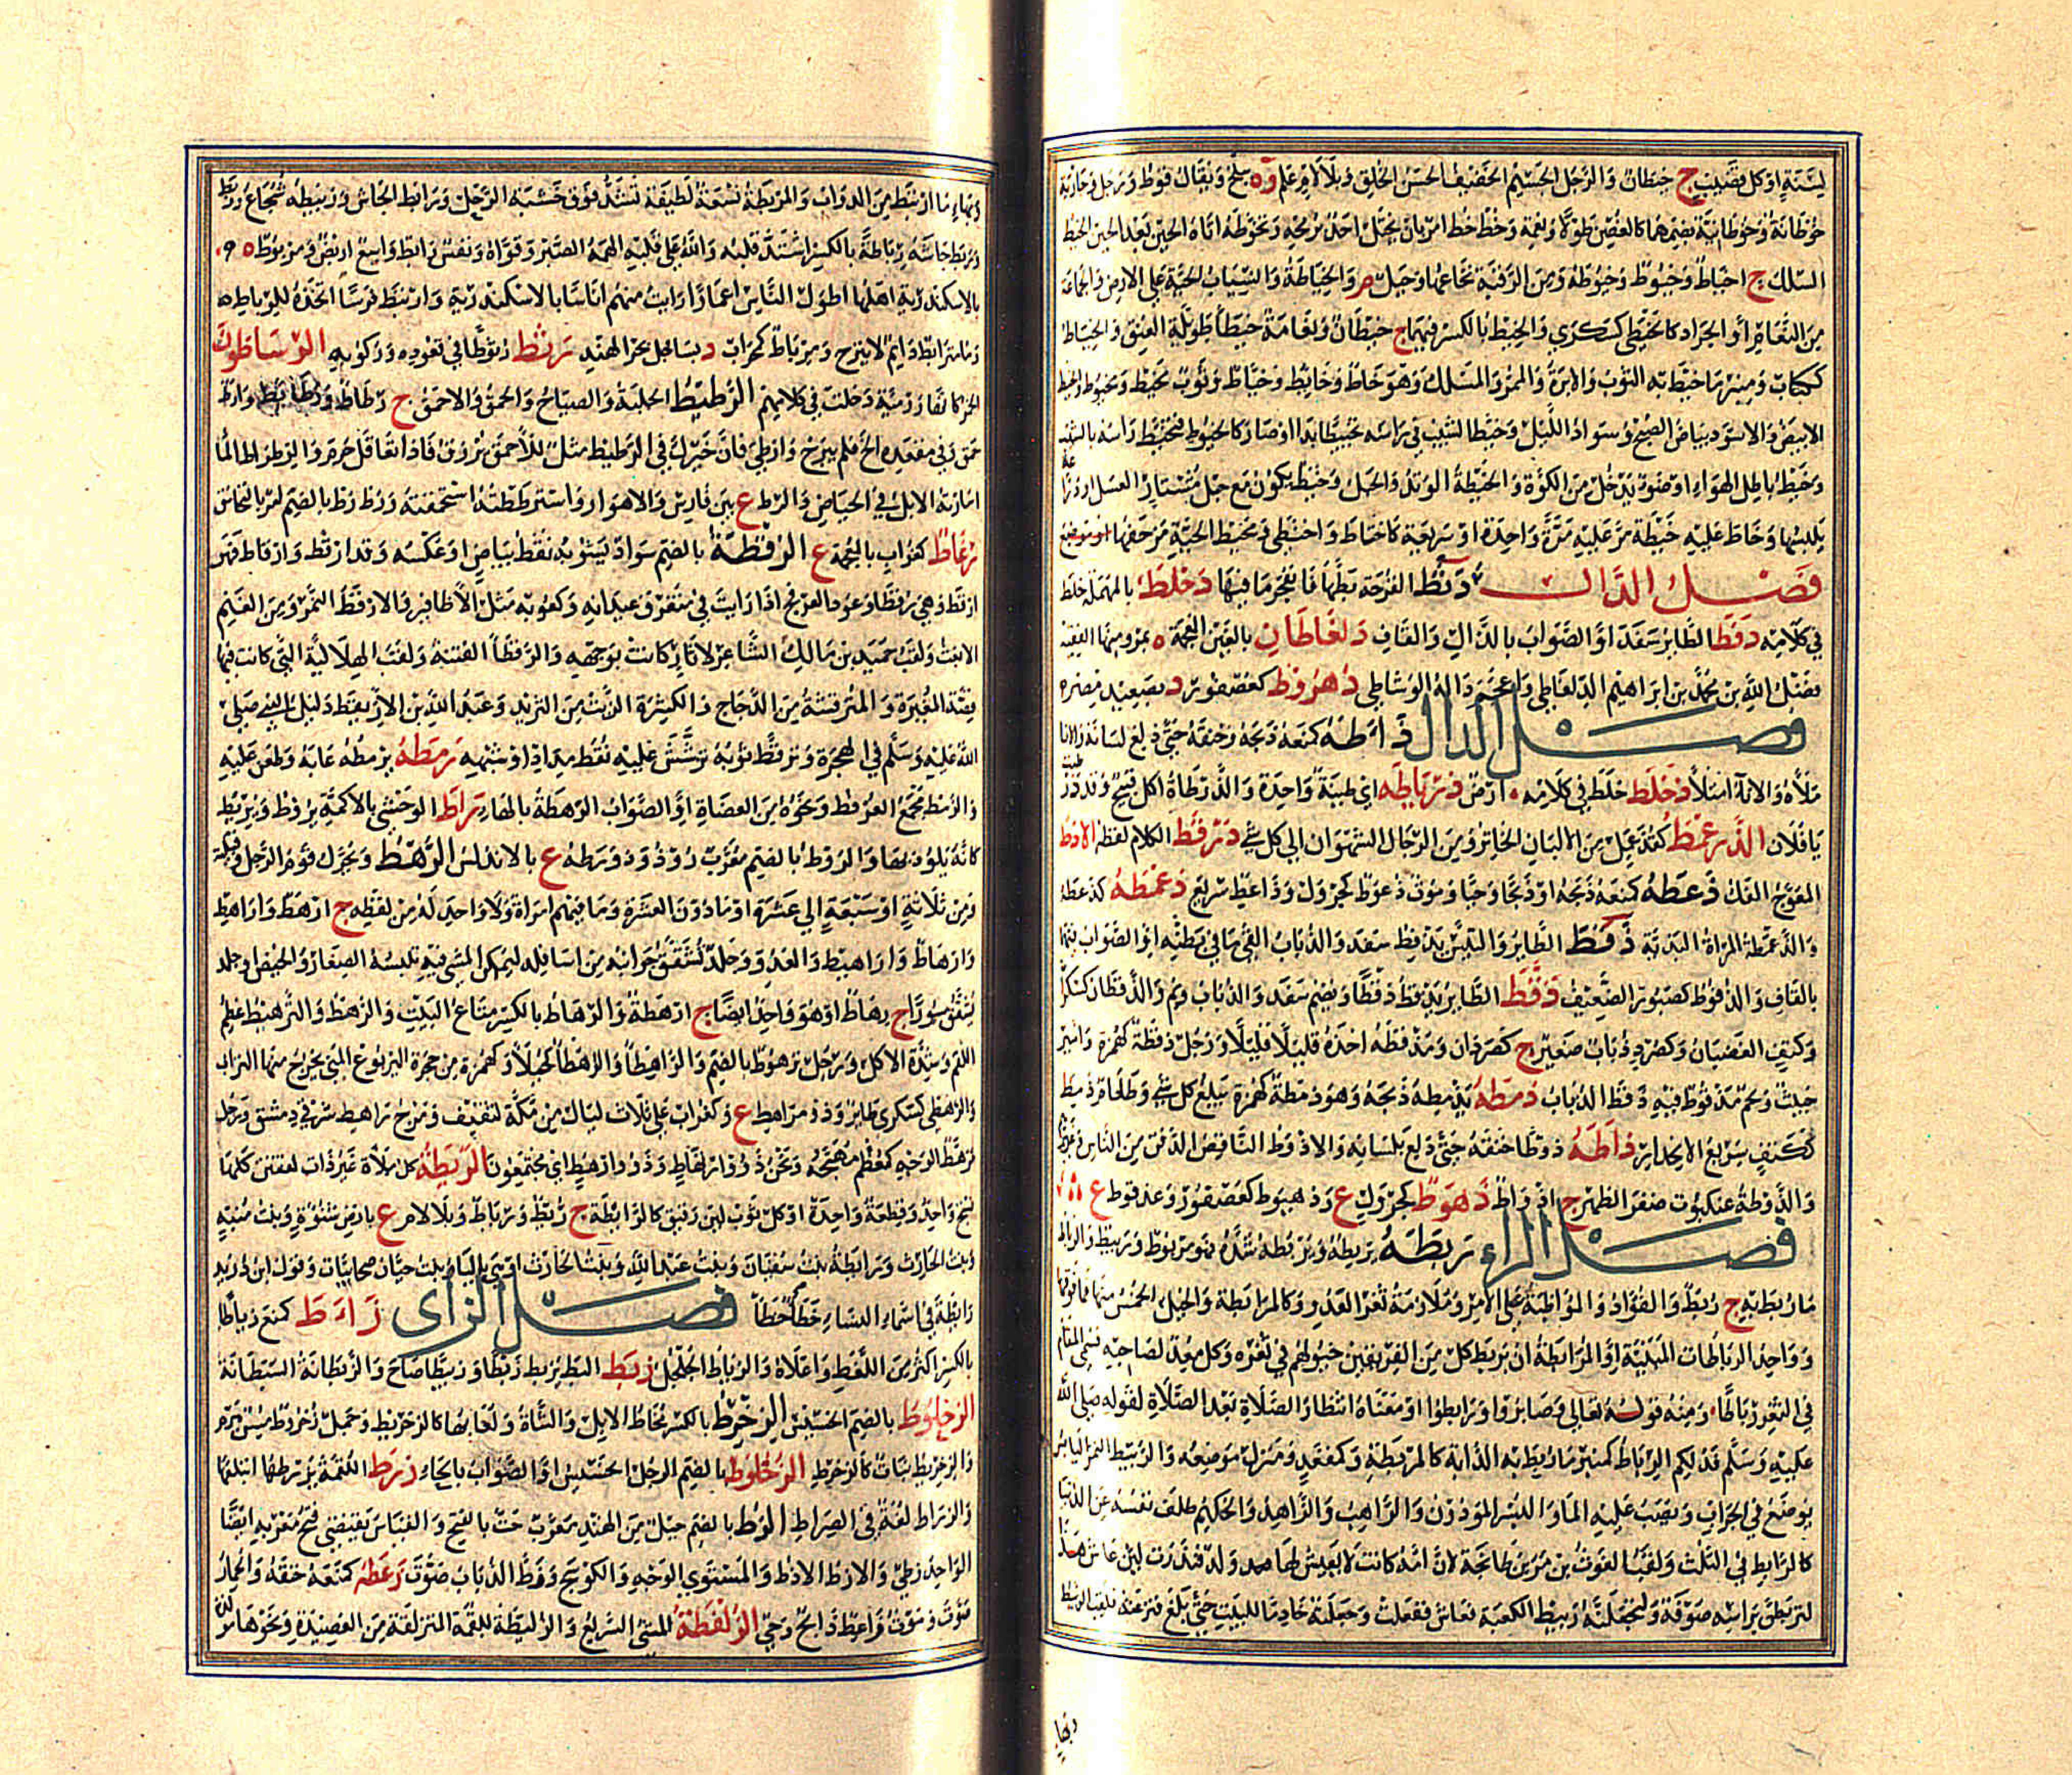 لينة او كل قضيب ج خيطان والرجل الجسيم الخفيف الحسن الخلق وبلا لام علم وة ببلخ ويقال قوط ورجل وجارية
خوطانة وخوطانية بضمهما كالغصن طولا ونعمة وخط خط امر بان يختل احد برمحه وتخوطه اتاه الحين بعد الحين الخيط
السلك ج اخياط وخيوط وخيوطة ومن الرقبة نخاعها وجبل م والخياطة والانسياب الحية على الارض والجماعة
من النعام او الجراد كالخيطى كسكرى والخيط بالكسر فيهما ج خيطان ونعامة خيطا طويلة العنق والخياط
ككتاب ومنبر ما خيط به الثوب والابرة والممر والمسلك وهو خاط وخائط وخياط وثوب مخيط ومخيوط والخيط
الابيض والاسود بياض الصبح وسواد الليل وخيط الشيب في راسه تخييطا بدا او صار كالخيوط فتخيط راسه بالشيب
وخيط باطل الهواء او ضوء يدخل من الكوة والخيطة الوتد والحبل وخيط يكون مع حبل مشتار العسل او دراعة
يلبسها وخاط عليه خيطة مر عليه مرة واحدة او سريعة كاختاط واختطى ومخيط الحية مزحفها
فصل الدال دثط القرحة بطها فانفجر ما فيها دحلط بالمهملة خلط
في كلامه دقط الطائر سفد او الصواب بالذال والقاف دلغاطان بالغين المعجمة ة بمرو منها الفقيه
فضل الله بن محمد بن ابراهيم الدلغاطي واعجم داله الرشاطي دهروط كعصفور د بصعيد مصر
فصل الذال ذاطه كمنعه ذبحه وخنقه حتى دلع لسانه والانا
ملاه والاناء امتلا ذحلط خلط في كلامه ارض ذرباطة اي طينة واحدة والذرطاة اكل قبيح وقد ذرطيت
يا فلان الذرعمط كقذعمل من الالبان الخاثر ومن الرجال الشهوان الى كل شي ذرقط الكلام لفظه الاذط
المعوج الفك ذعطه كمنعه ذبحه او ذبحا وحيا وموت ذعوط كجرول وذاعط سريع ذعمطه كذعطه
والذعمطة المراة البذية ذفط الطائر والتيس يذفط سفد والذباب القى ما في بطنه او الصواب فيهما
بالقاف والذفوط كصبور الضعيف ذقط الطائر يذقط ذقطا ويضم سفد والذباب ونم والذقطان كسكران
وككتف الغضبان وكصرد ذباب صغير ج كصردان وتذقطه اخذه قليلا قليلا ورجل ذقطة كهمزة واشير
خبيث ولحم مذقوط فيه ذقط الذباب ذمطه يذمطه ذبحه وهو ذمطة كهمزة يبلع كل شي وطعام ذمط
ككتف سريع الانحدار ذاطه ذوطا خنقه حتى دلع بلسانه والاذوط الناقص الذقن من الناس
والذوطة عنكبوت صفر الظهر ج اذواط ذهوط كجرول ع وذهيوط كعصفور وعذقوط ع
فصل الراء ربطه يربطه ويربطه شده فهو مربوط وربيط والرباط
ما ربط به ج ربط والفؤاد والمواظبة على الامر وملازمة ثغر العدو كالمرابطة والخيل الخمس منها فما فوقها
وواحد الرباطات المبنية او المرابطة ان يربط كل من الفريقين خيولهم في ثغره وكل معد لصاحبه فسمي المقام
في الثغر رباطا ومنه قوله تعالى وصابروا ورابطوا او معناه انتظار الصلاة بعد الصلاة لقوله صلى الله
عليه وسلم فذلكم الرباط كمنبر ما ربط به الدابة كالمربطة وكمقعد ومنزل موضعه والربيط التمر اليابس
يوضع في الجراب ويصب عليه الماء والبسر المودون والراهب والزاهد والحكيم ظلف نفسه عن الدنيا
كالرابط في الثلث ولقب الغوث بن مر بن طابخة لان امه كانت لا يعيش لها ولد فنذرت لئن عاش هذا
لتربطن براسه صوفة ولتجعلنه ربيط الكعبة فعاش ففعلت وجعلته خادما للبيت حتى بلغ فنزعته فلقب الربيط
وبهاء
وبهاء ما ارتبط من الدواب والمربطة نسعة لطيفة تشد فوق خشبة الرحل ورابط الجاش وربيطه شجاع وربط
وربط جاشه رباطة بالكسر اشتد قلبه والله على قلبه الهمه الصبر وقواه ونفس رابط واسع اريض ومربوط ة
بالاسكندرية اهلها اطول الناس اعمارا رايت منهم اناسا بالاسكندرية وارتبط فرسا اتخذه للرباط
وماء مترابط دايم لا ينزح ومرباط كمحراب د بساحل بحر الهند رثط رثوطا في قعوده وركوبه الرساطون
الخمر كانها رومية دخلت في كلامهم الرطيط الجلبة والصياح والحمق والاحمق ج رطاط ورطائط وارط
حمق وفي مقعده الح فلم يبرح وارطي فان خيرك في الرطيط مثل للاحمق يرزق فاذا تعاقل حرم والرطراط الماء
اسارته الابل في الحياض والرط ع بين فارس والاهواز واسترططته استحمقته ورط رط بالضم امر بالتحامق
رغاط كغراب بالمعجمة ع الرقطة بالضم سواد يشوبه نقط بياض او عكسه وقد ارقط وارقاط فهو
ارقط وهي رقطا وعود العرفج اذا رايت في متفرق عيدانه وكعوبه مثل الاظافير والارقط النمر ومن الغنم
الابغث ولقب حميد بن مالك الشاعر لاثار كانت بوجهه والرقطا الفتنة ولقب الهلالية التي كانت فيها
قصة المغيرة والمبرقشة من الدجاج والكثيرة الزيت من الثريد وعبد الله بن الاريقط دليل النبي صلى
الله عليه وسلم في الهجرة وترقط ثوبه ترشش عليه نقط مداد او شبهه رمطه يرمطه عابه وطعن عليه
والرمط مجمع العرفط ونحوه من العضاه او الصواب الرهط بالهاء راط الوحشي بالاكمة يروط ويريط
كانه يلوذ بها والروط بالضم معرب روذ ورُوطة ع بالاندلس الرهط ويحرك قوم الرجل وقبيلته
ومن ثلاثة او سبعة الى عشرة او ما دون العشرة وما فيهم امراة ولا واحد له من لفظه ج ارهط واراهط
وارهاط واراهيط والعدو وجلد تشقق جوانبه من اسافله ليمكن المشي فيه يلبسه الصغار والحيض او جلد
يشقق سيورا ج رهاط او هو واحد ايضا ج ارهطة والرهاط بالكسر متاع البيت والرهط والترهيط عظم
اللقم وشدة الاكل ورجل ترهوط بالضم والراهطا والرهطا كخيلا وكهمزة من جحرة اليربوع التي يخرج منها التراب
والرهطى كسكرى طائر وذو مراهط ع وكغراب ع على ثلاث ليال من مكة لثقيف ومرج راهط شرقي دمشق ورجل
مرهط الوجه كمعظم مهبجه ونحن ذوو ارتهاط وذوو ارهط اي مجتمعون الريطة كل ملاة غير ذات لفقين كلها
نسج واحد وقطعة واحدة او كل ثوب لين رقيق كالرايطة ج ريط ورياط وبلا لام ع بارض شنوءة وبنت منبه
وبنت الحارث ورايطة بنت سفيان وبنت عبد الله وبنت الحارث او هي بالياء وبنت حيان صحابيات وقول ابن دريد
رايطة في اسماء النساء خطا خطا فصل الزاي زاط كمنع زياطا
بالكسر اكثر من اللغط واعلاه والزياط الجلجل زبط البط يزبط زبطا وزبيطا صاح والزبطانة السبطانة
الزحلوط بالضم الخسيس الزخرط بالكسر مخاط الابل والشاة ولعابها كالزخريط وجمل زخروط مسن هرم
والزخريط نبات كالزخرط الزخلوط بالضم الرجل الخسيس او الصواب بالحاء زرط اللقمة يزرطها ابتلعها
والزراط لغة في الصراط الزط بالضم جيل من الهند معرب جت بالفتح والقياس يقتضي فتح معربه ايضا
الواحد زطي والازط الاذط والمستوي الوجه والكوسج وزط الذباب صوت زعطه كمنعه خنقه والحمار
صوت وموت زاعط ذابح وحي الزلقطة المشي السريع والزليطة اللقمة المنزلقة من العصيدة ونحوها